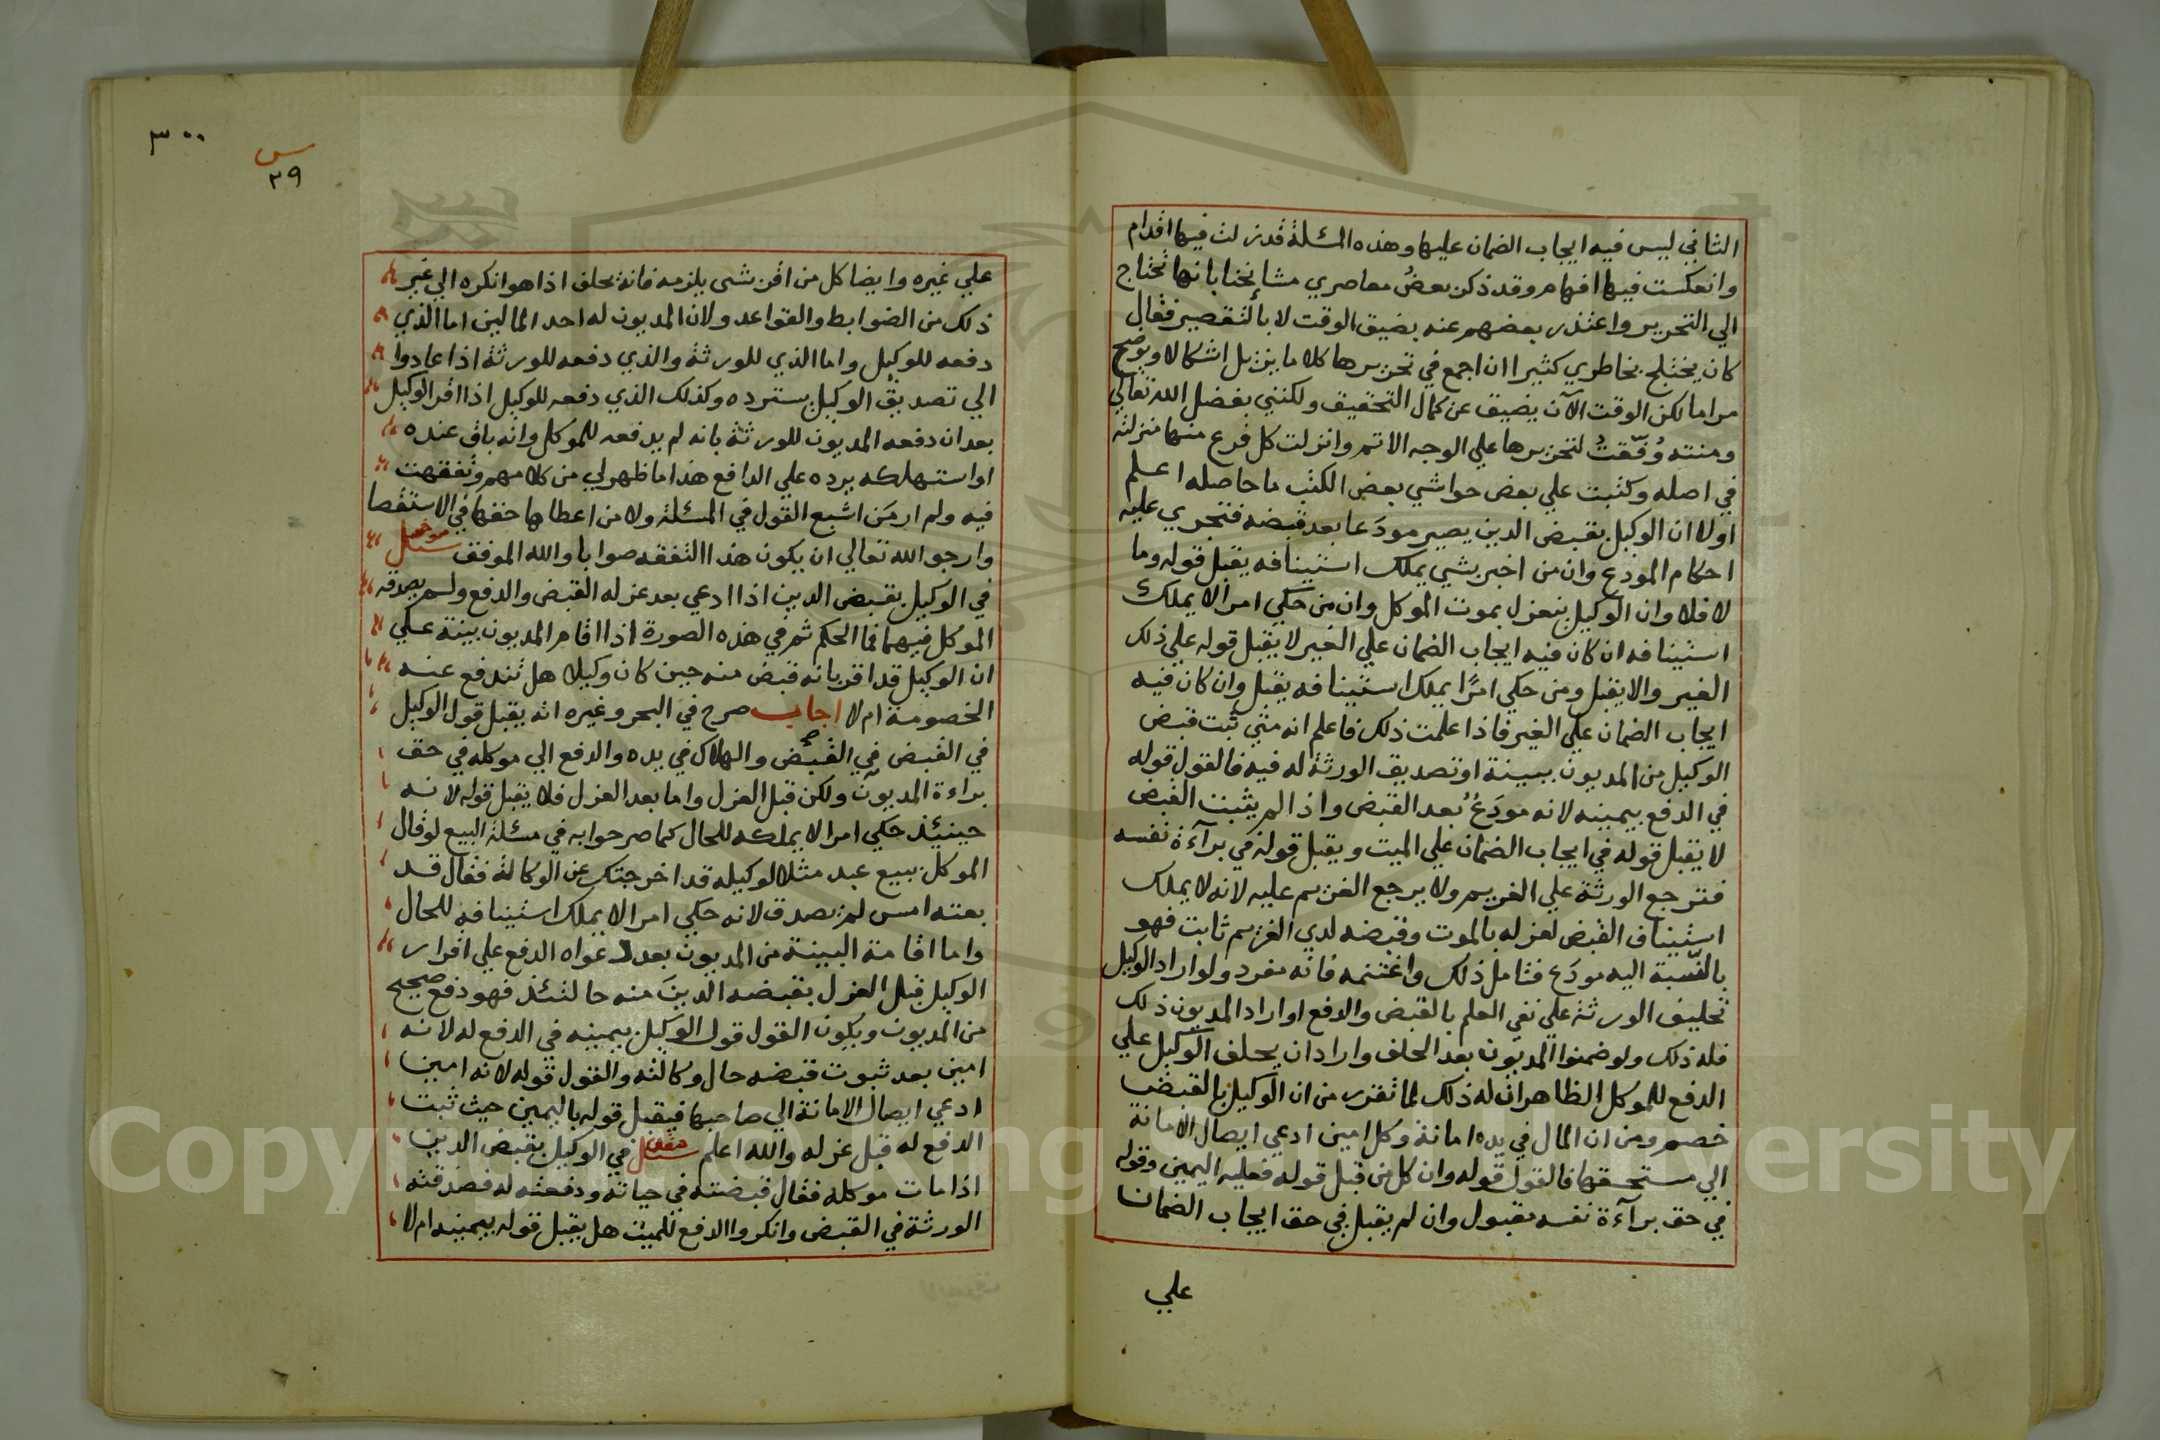 الثاني ليس فيه ايجاب الضمان عليها وهذه المسئلة قد زلت فيها اقدام
وانعكست فيها افهام وقد ذكر بعض معاصري مشايخنا بانها تحتاج
الي التحرير واعتذر بعضهم عنه بضيق الوقت لا بالتقصير فقال
كان يختلج بخاطري كثيرا ان اجمع في تحريرها كلاما يزيل اشكالا ويوضح
مراما لكن الوقت الآن يضيق عن كمال التحقيق ولكنني بفضل الله تعالي
ومنته وُفّقتُ لتحريرها علي الوجه الاتم وانزلت كل فرع منها منزلته
في اصله وكتبت علي بعض حواشي بعض الكتب ما حاصله اعلم
اولا ان الوكيل بقبض الدين يصير مودَعا بعد قبضه فتجري عليه
احكام المودع وان من اخبر بشي يملك استينافه يقبل قوله وما
لا فلا وان الوكيل ينعزل بموت الموكل وان من حكي امرا لا يملك
استينافه ان كان فيه ايجاب الضمان علي الغير لا يقبل قوله علي ذلك
الغير والا يقبل ومن حكي امرًا يملك استينافه يقبل وان كان فيه
ايجاب الضمان علي الغير فاذا علمت ذلك فاعلم انه متي ثبت قبض
الوكيل من المديون ببينة او تصديق الورثة له فيه فالقول قوله
في الدفع بيمينه لانه مودَعُ بعد القبض واذا لم يثبت القبض
لا يقبل قوله في ايجاب الضمان علي الميت ويقبل قوله في برآءة نفسه
فترجع الورثة علي الغريم ولا يرجع الغريم عليه لانه لا يملك
استيناف القبض لعزله بالموت وقبضه لدي الغريم ثابت فهو
بالنّسبة اليه مودَع فتامل ذلك واغتنمه فانه مفرد ولو اراد الوكيل
تحليف الورثة علي نفي العلم بالقبض والدفع او اراد المديون ذلك
فله ذلك ولو ضمنوا المديون بعد الحلف واراد ان يحلف الوكيل علي
الدفع للموكل الظاهر ان له ذلك لما تقرر من ان الوكيل بالقبض
خصم ومن ان المال في يده امانة وكل امين ادعي ايصال الامانة
الي مستحقها فالقول قوله وان كل من قبل قوله فعليه اليمين وقوله
في حق برآءة نفسه مقبول وان لم يقبل في حق ايجاب الضمان
علي
٣٠٠
س
٢٩
علي غيره وايضا كل من اقر بشي يلزمه فانه يحلف اذا هو انكره الي غير
ذلك من الضوابط والقواعد ولان المديون له احد المالين اما الذي
دفعه للوكيل واما الذي للورثة والذي دفعه للورثة اذا عادوا
الي تصديق الوكيل يسترده وكذلك الذي دفعه للوكيل اذا اقر الوكيل
بعد ان دفعه المديون للورثة بانه لم يدفعه للموكل وانه باق عنده
او استهلكه يرده علي الدافع هذا ما ظهر لي من كلامهم وتفقهت
فيه ولم ار مَن اشبع القول في المسئلة ولا من اعطاها حقها في الاستقصا
وارجو الله تعالي ان يكون هذا التفقه صوابا والله الموفق سئل
في الوكيل بقبض الدين اذا ادعي بعد عزله القبض والدفع ولم يصدقه
الموكل فيهما فما الحكم ثم في هذه الصورة اذا اقام المديون بينة علي
ان الوكيل قد اقر بانه قبض منه حين كان وكيلا هل تندفع عنه
الخصومة ام لا اجاب صرح في البحر وغيره انه يقبل قول الوكيل
في القبض في القبض والهلاك في يده والدفع الي موكله في حق
براءة المديون ولكن قبل العزل واما بعد العزل فلا يقبل قوله لانه
حينئذ حكي امرا لا يملكه للحال كما صرحوا به في مسئلة البيع لو قال
الموكل ببيع عبد مثلا لوكيله قد اخرجتك عن الوكالة فقال قد
بعته امس لم يصدق لانه حكي امرا لا يملك استينافه للحال
واما اقامة البينة من المديون بعد دعواه الدفع علي اقرار
الوكيل قبل العزل بقبضه الدينَ منه حالتئذ فهو دفع صحيح
من المديون ويكون القول قول الوكيل بيمينه في الدفع له لانه
امين بعد ثبوت قبضه حال وكالته والقول قوله لانه امين
ادعي ايصال الامانة الي صاحبها فيقبل قوله باليمين حيث ثبت
الدفع له قبل عزله والله اعلم سئل في الوكيل بقبض الدين
اذا مات موكله فقال قبضته في حياته ودفعته له فصدقته
الورثة في القبض وانكروا الدفع للميت هل يقبل قوله بيمينه ام لا
Copyright © King Saud University